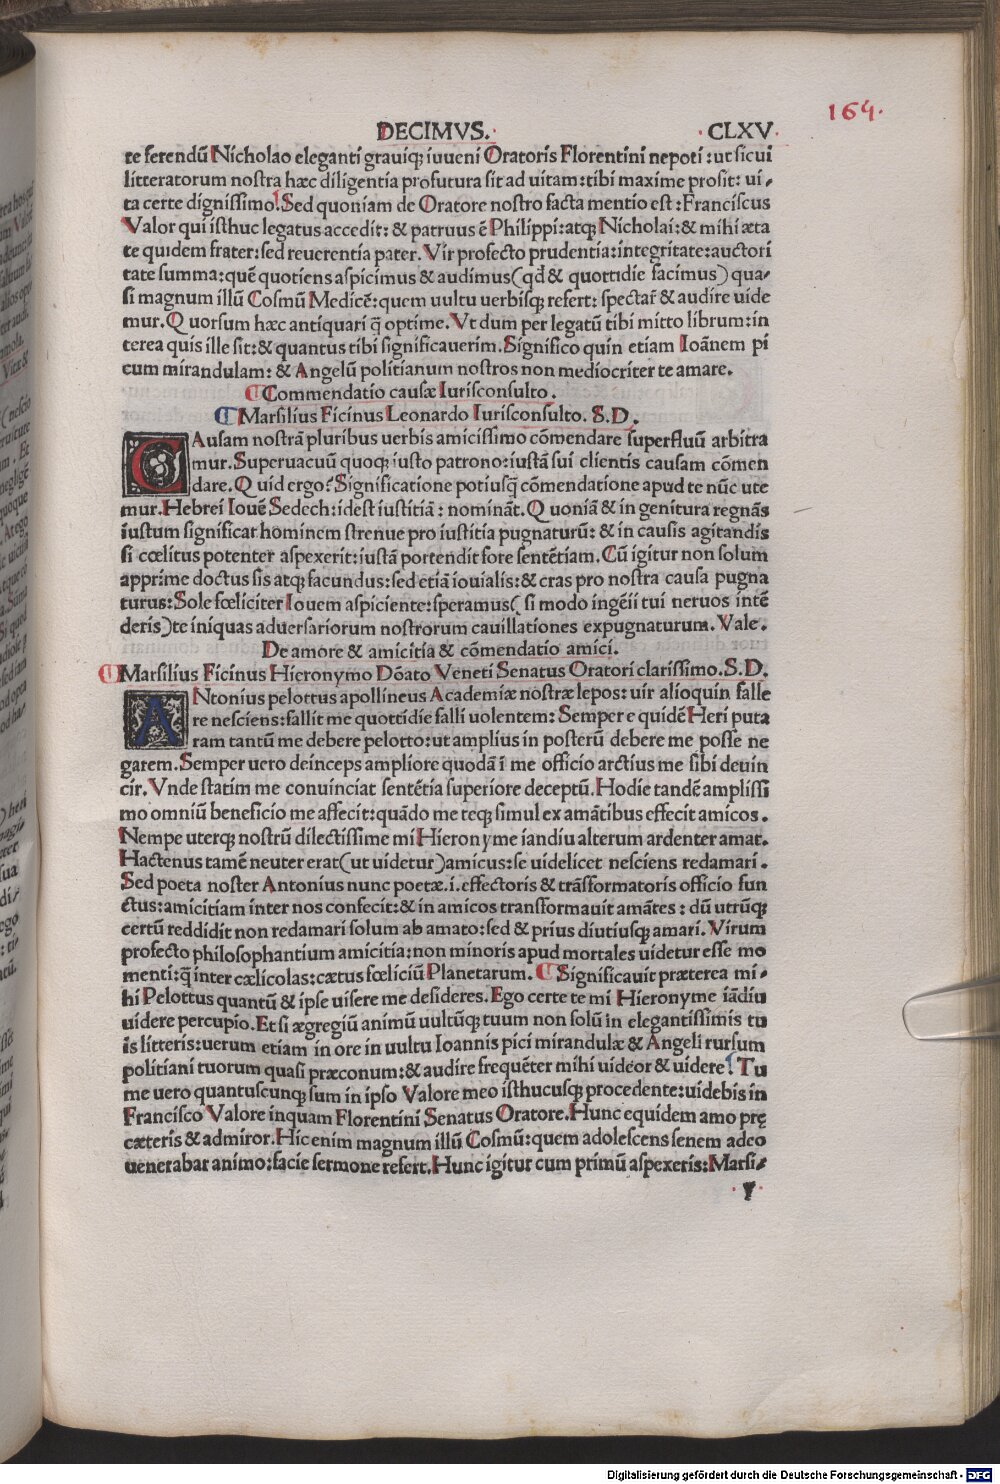 164.
DECIMVS. CLXV
te ferendū Nicholao eleganti grauiq; iuueni Oratoris Florentini nepoti: ut sicui
litteratorum nostra hæc diligentia profutura sit ad uitam: tibi maxime prosit: ui⸗
ta certe dignissimo. Sed quoniam de Oratore nostro facta mentio est: Franciscus
Valor qui isthuc legatus accedit: & patruus ē Philippi: atq; Nicholai: & mihi æta
te quidem frater: sed reuerentia pater. Vir profecto prudentia: integritate: auctori
tate summa: quē quotiens aspicimus & audimus (qd̄ & quottidie facimus) qua⸗
si magnum illū Cosmū Medicē: quem uultu uerbisq; refert: spectar̄ & audire uide
mur. Quorsum hæc antiquari q̄ optime. Vt dum per legatū tibi mitto librum: in
terea quis ille sit: & quantus tibi significauerim. Significo quin etiam Ioānem pi
cum mirandulam: & Angelū politianum nostros non mediocriter te amare.
Commendatio causæ Iurisconsulto.
Marsilius Ficinus Leonardo Iurisconsulto. S.D.
CAusam nostrā pluribus uerbis amicissimo cōmendare superfluū arbitra
mur. Superuacuū quoq; iusto patrono: iustā sui clientis causam cōmen
dare. Quid ergo? Significatione potiusq̄ cōmendatione apud te nūc ute
mur. Hebrei Iouē Sedech: idest iustitiā: nomināt. Quoniā & in genitura regnās
iustum significat hominem strenue pro iustitia pugnaturū: & in causis agitandis
si cœlitus potenter aspexerit: iustā portendit fore sentētiam. Cū igitur non solum
apprime doctus sis atq; facundus: sed etiā iouialis: & cras pro nostra causa pugna
turus: Sole fœliciter Iouem aspiciente: speramus (si modo ingēii tui neruos intē
deris) te iniquas aduersariorum nostrorum cauillationes expugnaturum. Vale.
De amore & amicitia & cōmendatio amici.
Marsilius Ficinus Hieronymo Dōato Veneti Senatus Oratori clarissimo. S.D.
ANtonius pelottus apollineus Academiæ nostræ lepos: uir alioquin falle
re nesciens: fallit me quottidie falli uolentem: Semper e quidē Heri puta
ram tantū me debere pelotto: ut amplius in posterū debere me posse ne
garem. Semper uero deinceps ampliore quodā ī me officio arctius me sibi deuin
cir. Vnde statim me conuinciat sentētia superiore deceptū. Hodie tandē amplissi
mo omniū beneficio me affecit: quādo me teq; simul ex amātibus effecit amicos.
Nempe uterq; nostrū dilectissime mi Hieronyme iandiu alterum ardenter amat.
Hactenus tamē neuter erat (ut uidetur) amicus: se uidelicet nesciens redamari.
Sed poeta noster Antonius nunc poetæ .i. effectoris & trāsformatoris officio fun
ctus: amicitiam inter nos confecit: & in amicos transformauit amātes: dū utrūq;
certū reddidit non redamari solum ab amato: sed & prius diutiusq; amari. Virum
profecto philosophantium amicitia: non minoris apud mortales uidetur esse mo
menti: q̄ inter cælicolas: cætus fœliciū Planetarum. Significauit præterea mi⸗
hi Pelottus quantū & ipse uisere me desideres. Ego certe te mi Hieronyme iādiu
uidere percupio. Et si ægregiū animū uultūq; tuum non solū in elegantissimis tu
is litteris: uerum etiam in ore in uultu Ioannis pici mirandulæ & Angeli rursum
politiani tuorum quasi præconum: & audire frequēter mihi uideor & uidere. Tu
me uero quantuscunq; sum in ipso Valore meo isthucusq; procedente: uidebis in
Francisco Valore inquam Florentini Senatus Oratore. Hunc equidem amo prę
cæteris & admiror. Hic enim magnum illū Cosmū: quem adolescens senem adeo
uenerabar animo: facie sermone refert. Hunc igitur cum primū aspexeris: Marsi⸗
Y
Digitalisierung gefördert durch die Deutsche Forschungsgemeinschaft - DFG